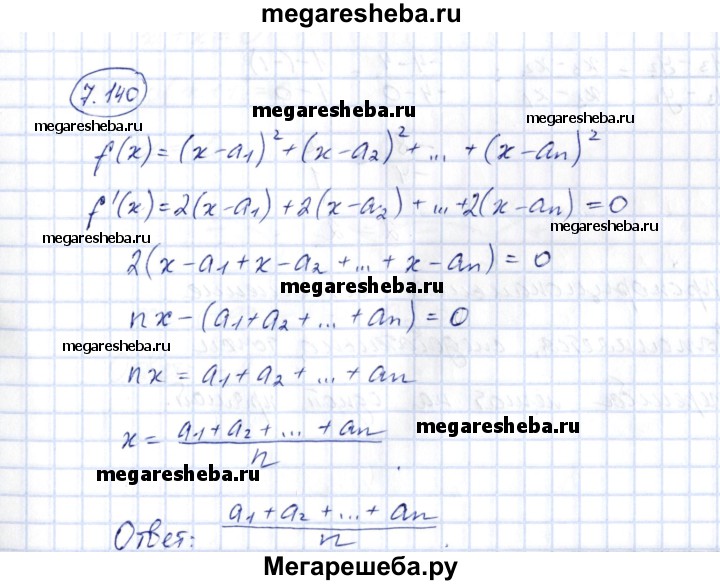 megaresheba.ru
7.140
megaresheba.ru
megaresheba.ru
f(x)=(x-a₁)²+(x-a₂)²+...+(x-an)²
f'(x)=2(x-a₁)+2(x-a₂)+...+2(x-an)=0
megaresheba.ru
2(x-a₁+x-a₂+...+x-an)=0
megaresheba.ru
nx-(a₁+a₂+...+an)=0
megaresheba.ru
nx=a₁+a₂+...+an
x=(a₁+a₂+...+an)/n.
megaresheba.ru
megaresheba.ru
Ответ: (a₁+a₂+...+an)/n.
Мегарешеба.ру